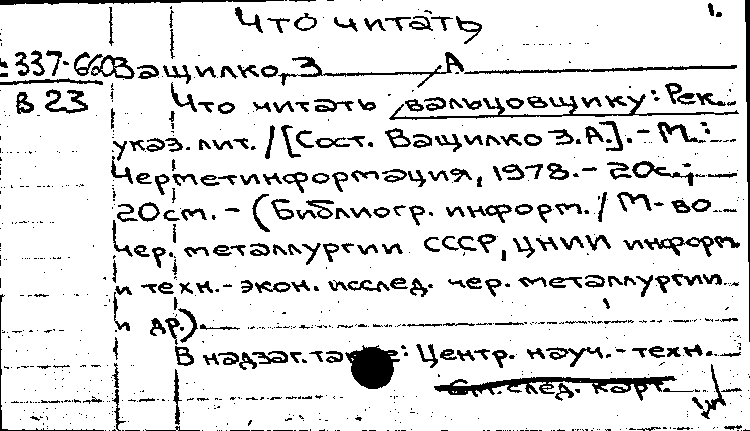 Что читать 1.
337-660 Ващилко, З А
В 23 Что читать вальцовщику: Рек.
указ. лит. / [Сост. Ващилко З.А.]. - М.:
Черметинформация, 1978. - 20с.;
20см. - (Библиогр. информ. / М-во
чер. металлургии СССР, ЦНИИ информ.
и техн.-экон. исслед. чер. металлургии
и др.).
В надзаг. также: Центр. науч.-техн.
См. след. карт.